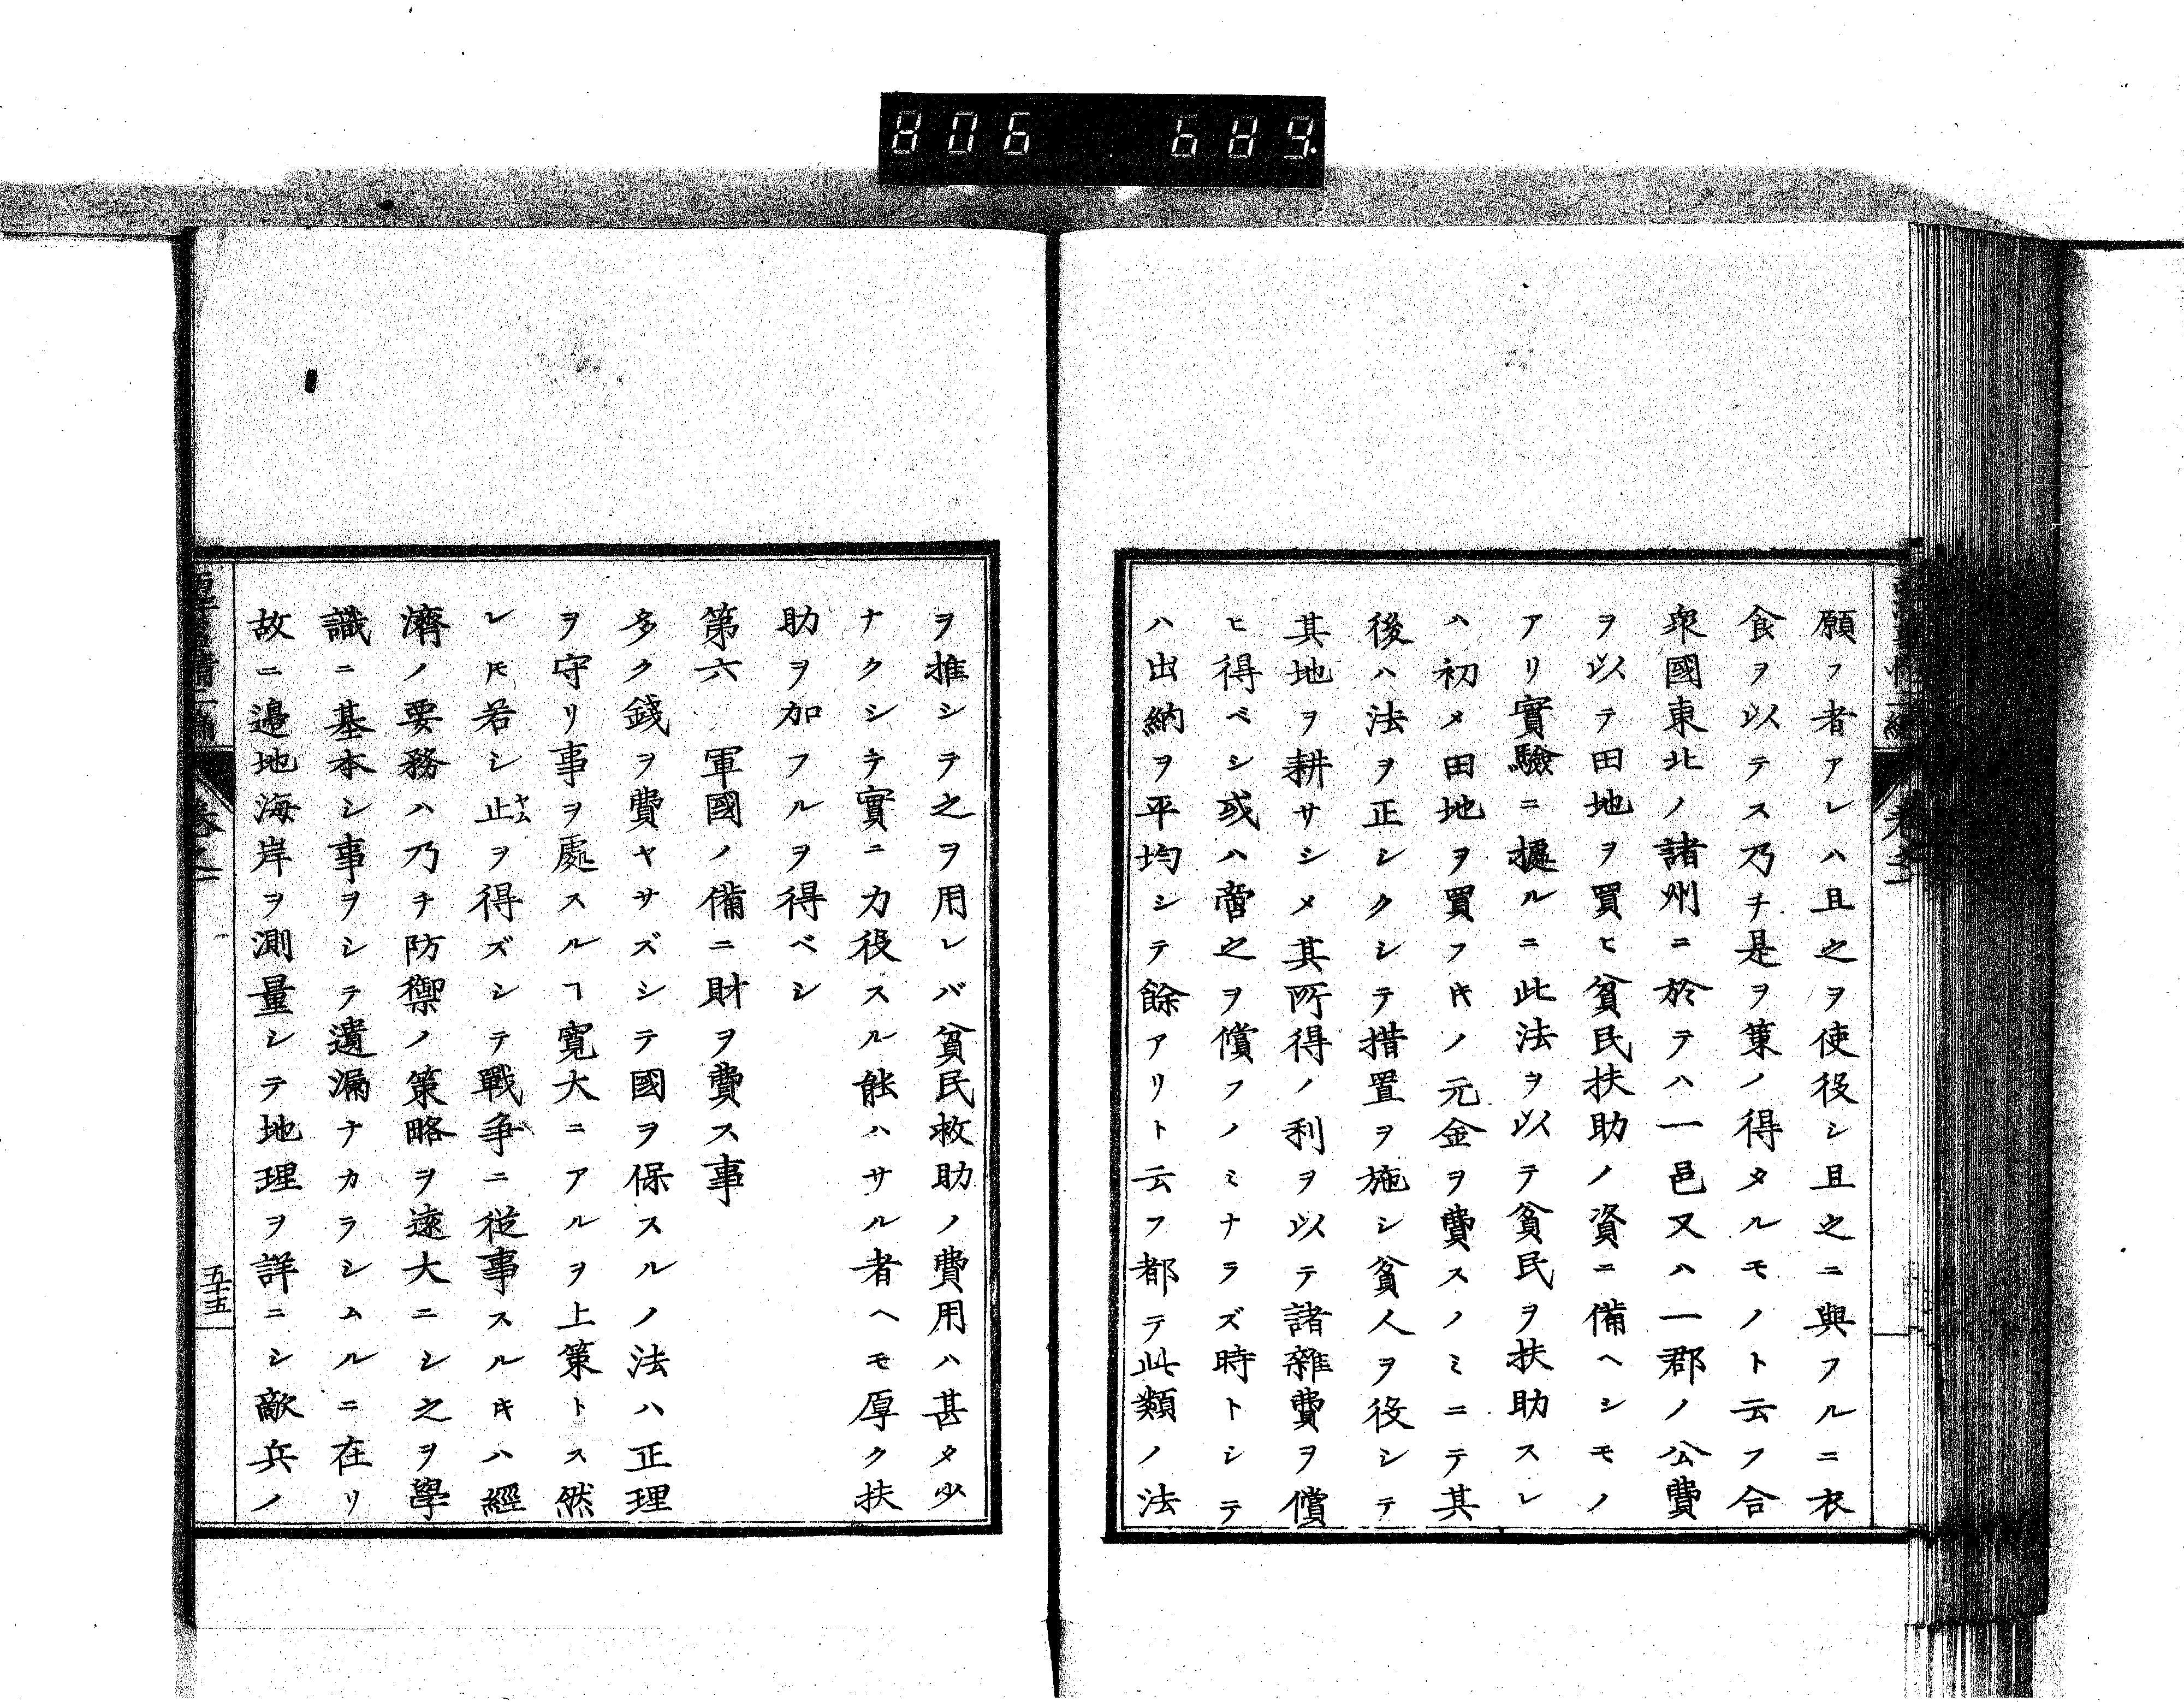 806 689
願フ者アレハ且之ヲ使役シ且之ニ與フルニ衣
食ヲ以テス乃チ是ヲ菓ノ得タルモノト云フ合
衆國東北ノ諸州ニ於テハ一邑又ハ一郡ノ公費
ヲ以テ田地ヲ買ヒ貧民扶助ノ資ニ備ヘシモノ
アリ實驗ニ據ルニ此法ヲ以テ貧民ヲ扶助スレ
ハ初メ田地ヲ買フキノ元金ヲ費スノミニテ其
後ハ法ヲ正シクシテ措置ヲ施シ貧人ヲ役シテ
其地ヲ耕サシメ其所得ノ利ヲ以テ諸雜費ヲ償
ヒ得ベシ或ハ啻之ヲ償フノミナラズ時トシテ
ハ出納ヲ平均シテ餘アリト云フ都テ此類ノ法
ヲ推シテ之ヲ用レバ貧民救助ノ費用ハ甚タ少
ナクシテ實ニ力役スル能ハサル者ヘモ厚ク扶
助ヲ加フルヲ得ベシ
第六 軍國ノ備ニ財ヲ費ス事
多ク錢ヲ費ヤサズシテ國ヲ保スルノ法ハ正理
ヲ守リ事ヲ處スルヿ寬大ニアルヲ上策トス然
レ𪜈若シ止ヤムヲ得ズシテ戰爭ニ從事スルキハ經
濟ノ要務ハ乃チ防禦ノ策略ヲ遠大ニシ之ヲ學
識ニ基本シ事ヲシテ遺漏ナカラシムルニ在リ
故ニ邊地海岸ヲ測量シテ地理ヲ詳ニシ敵兵ノ
卷之一
五十五